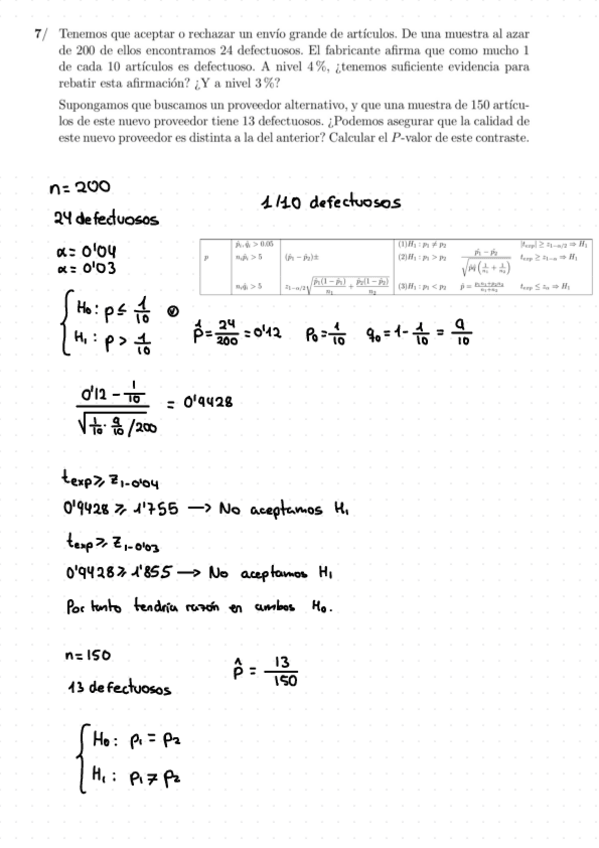 7/ Tenemos que aceptar o rechazar un envío grande de artículos. De una muestra al azar
de 200 de ellos encontramos 24 defectuosos. El fabricante afirma que como mucho 1
de cada 10 artículos es defectuoso. A nivel 4 %, ¿tenemos suficiente evidencia para
rebatir esta afirmación? ¿Y a nivel 3 %?
Supongamos que buscamos un proveedor alternativo, y que una muestra de 150 artícu-
los de este nuevo proveedor tiene 13 defectuosos. ¿Podemos asegurar que la calidad de
este nuevo proveedor es distinta a la del anterior? Calcular el P-valor de este contraste.
n=200
1/10 defectuosos
24 defectuosos
α=0'04
α=0'03
p̂ᵢ, q̂ᵢ > 0.05 (1)H₁ : p₁ ≠ p₂ |t_exp| ≥ z_{1−α/2} ⇒ H₁
p nᵢp̂ᵢ > 5 (p̂₁ − p̂₂)± (2)H₁ : p₁ > p₂ (p̂₁ − p̂₂)/√(p̂q̂(1/n₁ + 1/n₂)) t_exp ≥ z_{1−α} ⇒ H₁
nᵢq̂ᵢ > 5 z_{1−α/2}√(p̂₁(1 − p̂₁)/n₁ + p̂₂(1 − p̂₂)/n₂) (3)H₁ : p₁ < p₂ p̂ = (p̂₁n₁+p̂₂n₂)/(n₁+n₂) t_exp ≤ z_α ⇒ H₁
H₀: p ≤ 1/10
H₁: p > 1/10
p̂ = 24/200 = 0'12 p₀ = 1/10 q₀ = 1 - 1/10 = 9/10
(0'12 - 1/10)/√(1/10 · 9/10 /200) = 0'9428
t_exp ≥ z_{1-0'04}
0'9428 ≥ 1'755 → No aceptamos H₁
t_exp ≥ z_{1-0'03}
0'9428 ≥ 1'855 → No aceptamos H₁
Por tanto tendría razón en ambos H₀.
n=150
p̂ = 13/150
13 defectuosos
H₀: p₁ = p₂
H₁: p₁ ≠ p₂